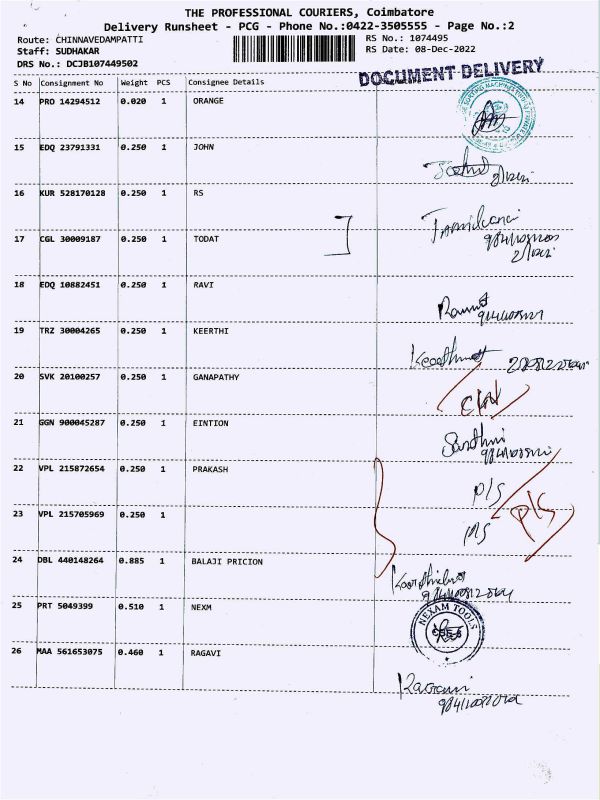 THE PROFESSIONAL COURIERS, Coimbatore
Delivery Runsheet - PCG - Phone No.:0422-3505555 - Page No.:2
Route: CHINNAVEDAMPATTI
RS No.: 1074495
Staff: SUDHAKAR
RS Date: 08-Dec-2022
DRS No.: DCJB107449502
DOCUMENT DELIVERY
S No Consignment No Weight PCS Consignee Details
14 PRO 14294512 0.020 1 ORANGE
15 EDQ 23791331 0.250 1 JOHN
16 KUR 528170128 0.250 1 RS
17 CGL 30009187 0.250 1 TODAT
18 EDQ 10882451 0.250 1 RAVI
19 TRZ 30004265 0.250 1 KEERTHI
20 SVK 20100257 0.250 1 GANAPATHY
21 GGN 900045287 0.250 1 EINTION
22 VPL 215872654 0.250 1 PRAKASH
P/S
23 VPL 215705969 0.250 1
P/S
24 DBL 440148264 0.885 1 BALAJI PRICION
25 PRT 5049399 0.510 1 NEXM
NEXAM TOOLS
26 MAA 561653075 0.460 1 RAGAVI